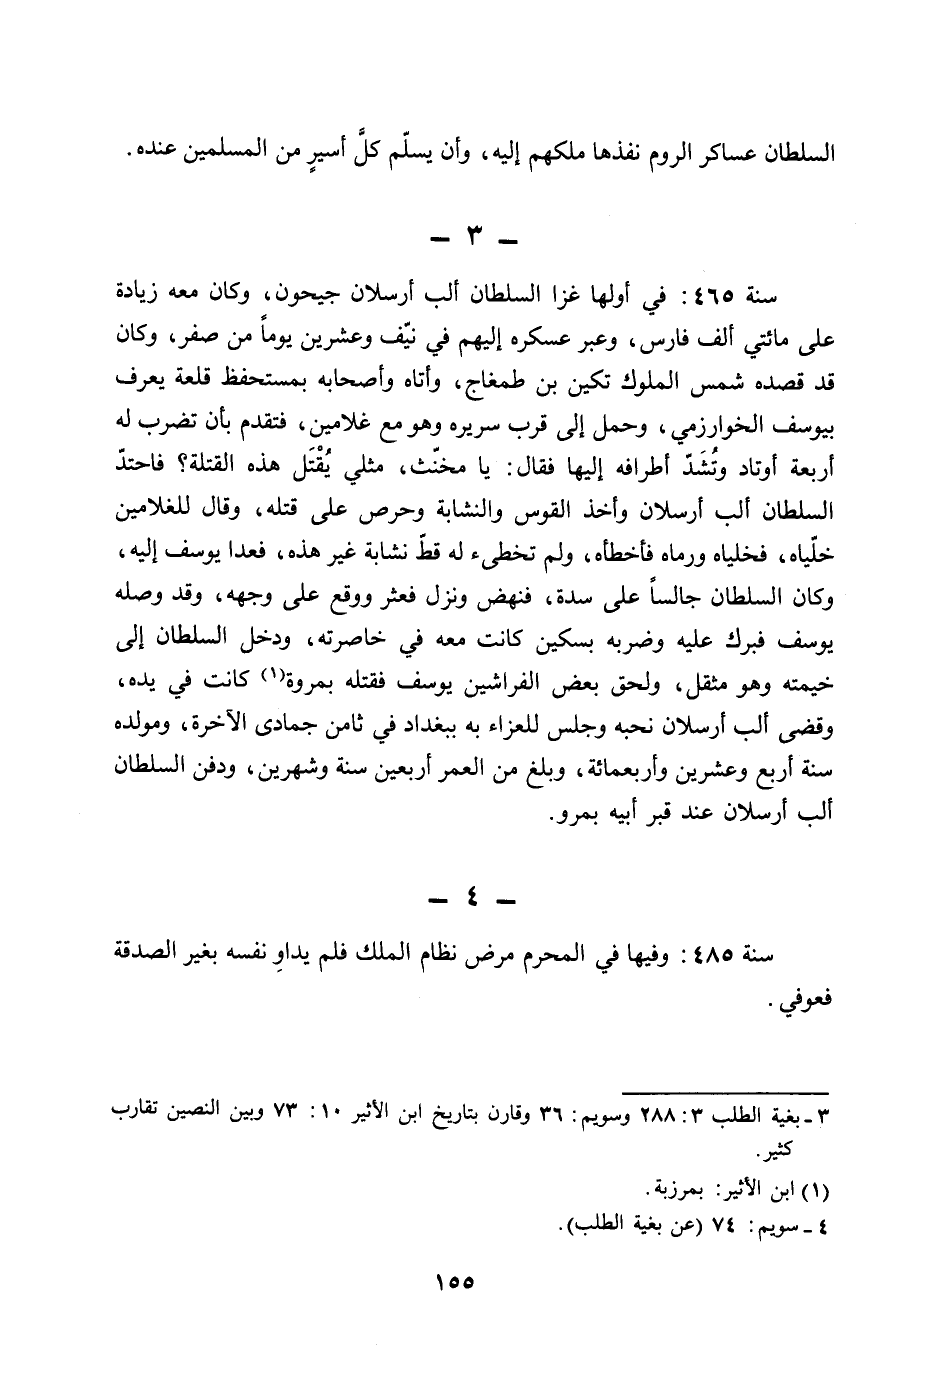 السلطان عساكر الروم نفذها ملكهم إليه، وأن يسلّم كلَّ أسيرٍ من المسلمين عنده.
– ٣ –
سنة ٤٦٥: في أولها غزا السلطان ألب أرسلان جيحون، وكان معه زيادة
على مائتي ألف فارس، وعبر عسكره إليهم في نيّف وعشرين يوماً من صفر، وكان
قد قصده شمس الملوك تكين بن طمغاج، وأتاه وأصحابه بمستحفظ قلعة يعرف
بيوسف الخوارزمي، وحمل إلى قرب سريره وهو مع غلامين، فتقدم بأن تضرب له
أربعة أوتاد وتُشَدّ أطرافه إليها فقال: يا مخنّث، مثلي يُقْتَل هذه القتلة؟ فاحتدّ
السلطان ألب أرسلان وأخذ القوس والنشابة وحرص على قتله، وقال للغلامين
خلّياه، فخلياه ورماه فأخطأه، ولم تخطىء له قطّ نشابة غير هذه، فعدا يوسف إليه،
وكان السلطان جالساً على سدة، فنهض ونزل فعثر ووقع على وجهه، وقد وصله
يوسف فبرك عليه وضربه بسكين كانت معه في خاصرته، ودخل السلطان إلى
خيمته وهو مثقل، ولحق بعض الفراشين يوسف فقتله بمروة(١) كانت في يده،
وقضى ألب أرسلان نحبه وجلس للعزاء به ببغداد في ثامن جمادى الآخرة، ومولده
سنة أربع وعشرين وأربعمائة، وبلغ من العمر أربعين سنة وشهرين، ودفن السلطان
ألب أرسلان عند قبر أبيه بمرو.
– ٤ –
سنة ٤٨٥: وفيها في المحرم مرض نظام الملك فلم يداوِ نفسه بغير الصدقة
فعوفي.
٣ ـ بغية الطلب ٣: ٢٨٨ وسويم: ٣٦ وقارن بتاريخ ابن الأثير ١٠: ٧٣ وبين النصين تقارب
كثير.
(١) ابن الأثير: بمرزبة.
٤ ـ سويم: ٧٤ (عن بغية الطلب).
١٥٥